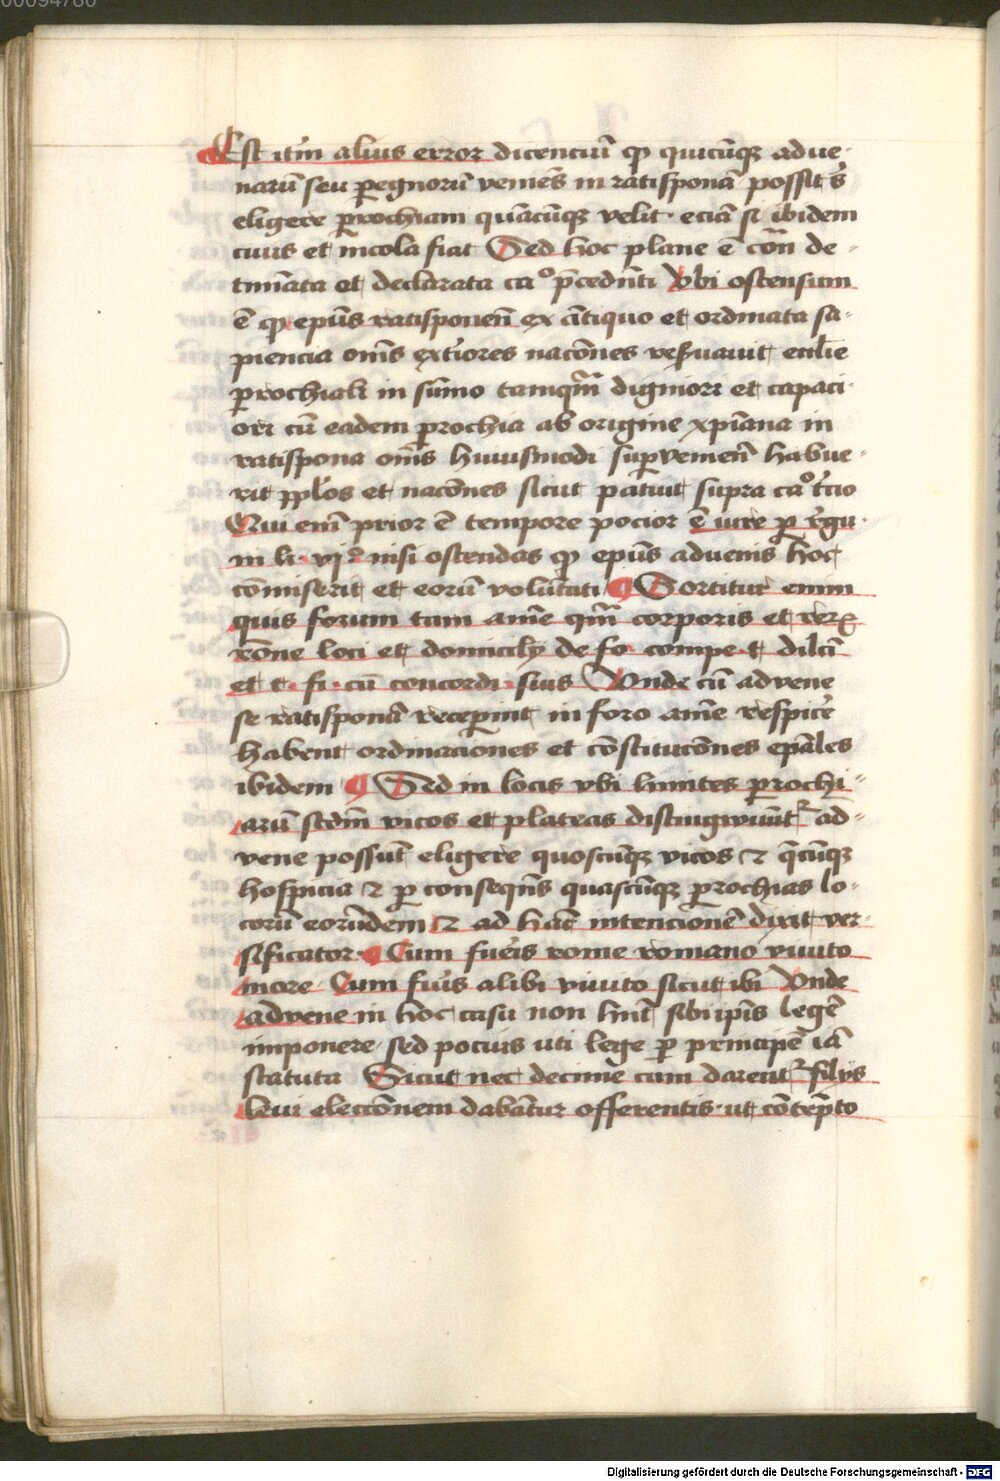 00094780
Est itm̄ alius error dicenciū ꝙ quicūqꝫ adue-
narū seu ꝑegrinorū veniēs in ratisponā possit s̄
eligere ꝑrochiam quācūqꝫ velit · eciā si ibidem
ciuis et īncola fiat Sed hoc plane ē cōn de-
tminata et declarata caº p̄cedn̄ti Vbi ostensum
ē ꝙ ep̄us ratisponen̄ ex ātiquo et ordinata sa-
piencia om̄s ext̄iores nacōnes res̄uauit eccl̄ie
ꝑrochiali in sūmo tamqm̄ digniori et capaci-
ori cū eadem ꝑrochia ab origine xp̄iana in
ratispona om̄s huiusmodi suꝑvenien̄ habue-
rit pp̄l'os et nacōnes sicut patuit supra caº t̄cio
Qui eni prior ē tempore pocior ē iure ꝑ r̄gu-
in li · vjº nisi ostendas ꝙ ep̄us aduenis hoc
cōmiserit et eorū volūtati ¶ Sortitur enim
quis forum tam anīe qm̄ corporis et rerꝝ
rōne loci et domicilij de fo · compe · t̄ dilc̄i
et t · fi · cū concordi · suis Vnde cū advene
se ratisponā receperint in foro anīe respic̄e
habent ordinaciones et cōstitucōnes epāles
ibidem ¶ Sed in locis vbi limites ꝑrochi-
arū scdm̄ vicos et plateas distingwūnt᷑ ad-
vene possūt eligere quoscūqꝫ vicos ⁊ q̄cūqꝫ
hospicia ⁊ ꝑ conseqn̄s quascūqꝫ ꝑrochias lo-
corū eorūdem ⁊ ad hāc intencionē dixit ver-
sificator ¶ Cum fuēis rome romano viuito
more Cum fūis alibi viuito sicut ibi Vnde
advene in hoc casu non hn̄t sibi ip̄is legē
imponere · sed pocius uti lege ꝑ principē iā
statuta Sicut nec decime cum darent᷑ filijs
leui eleccōnem dabātur offerentis · ut cōtēp̄to
Digitalisierung gefördert durch die Deutsche Forschungsgemeinschaft - DFG